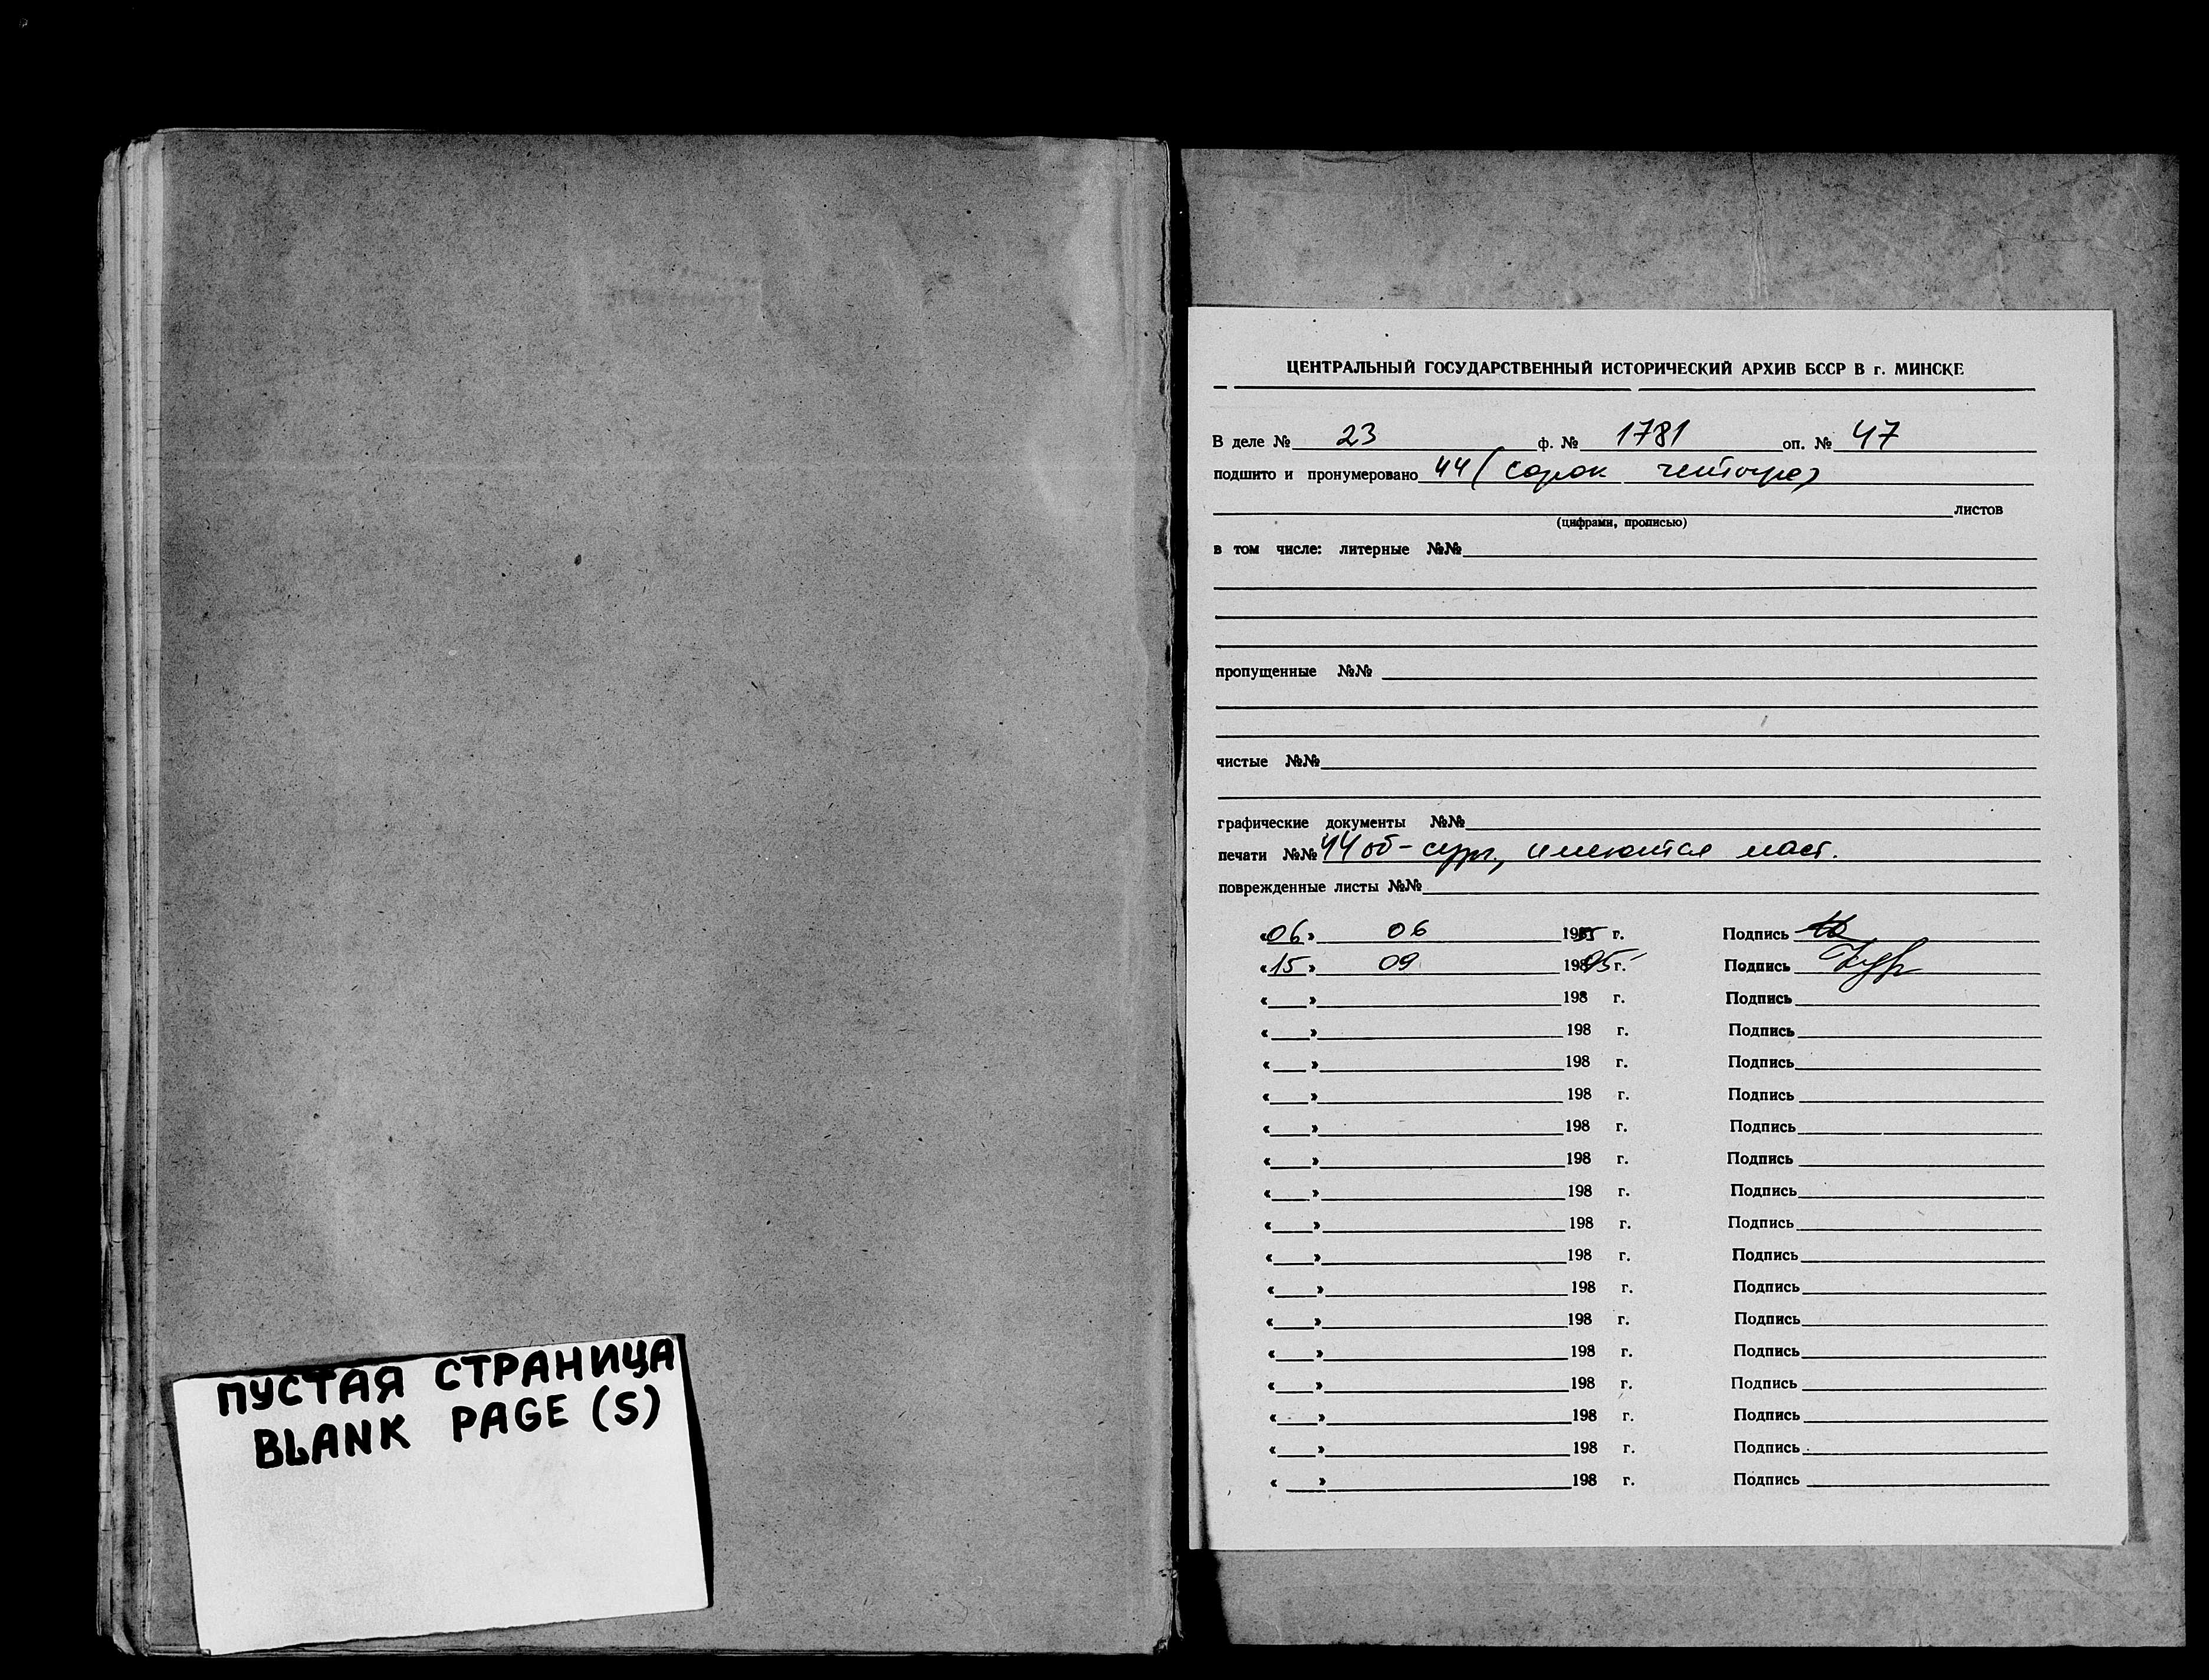 ПУСТАЯ СТРАНИЦА
BLANK PAGE (S)
ЦЕНТРАЛЬНЫЙ ГОСУДАРСТВЕННЫЙ ИСТОРИЧЕСКИЙ АРХИВ БССР В г. МИНСКЕ
В деле № 23 ф. № 1781 оп. № 47
подшито и пронумеровано 44 (сорок четыре)
листов
(цифрами, прописью)
в том числе: литерные №№
пропущенные №№
чистые №№
графические документы №№
печати №№ 44 об - сург., имеются маст.
поврежденные листы №№
«06» 06 г. Подпись
«15» 09 1995 г. Подпись
«  » 198 г. Подпись
«  » 198 г. Подпись
«  » 198 г. Подпись
«  » 198 г. Подпись
«  » 198 г. Подпись
«  » 198 г. Подпись
«  » 198 г. Подпись
«  » 198 г. Подпись
«  » 198 г. Подпись
«  » 198 г. Подпись
«  » 198 г. Подпись
«  » 198 г. Подпись
«  » 198 г. Подпись
«  » 198 г. Подпись
«  » 198 г. Подпись
«  » 198 г. Подпись